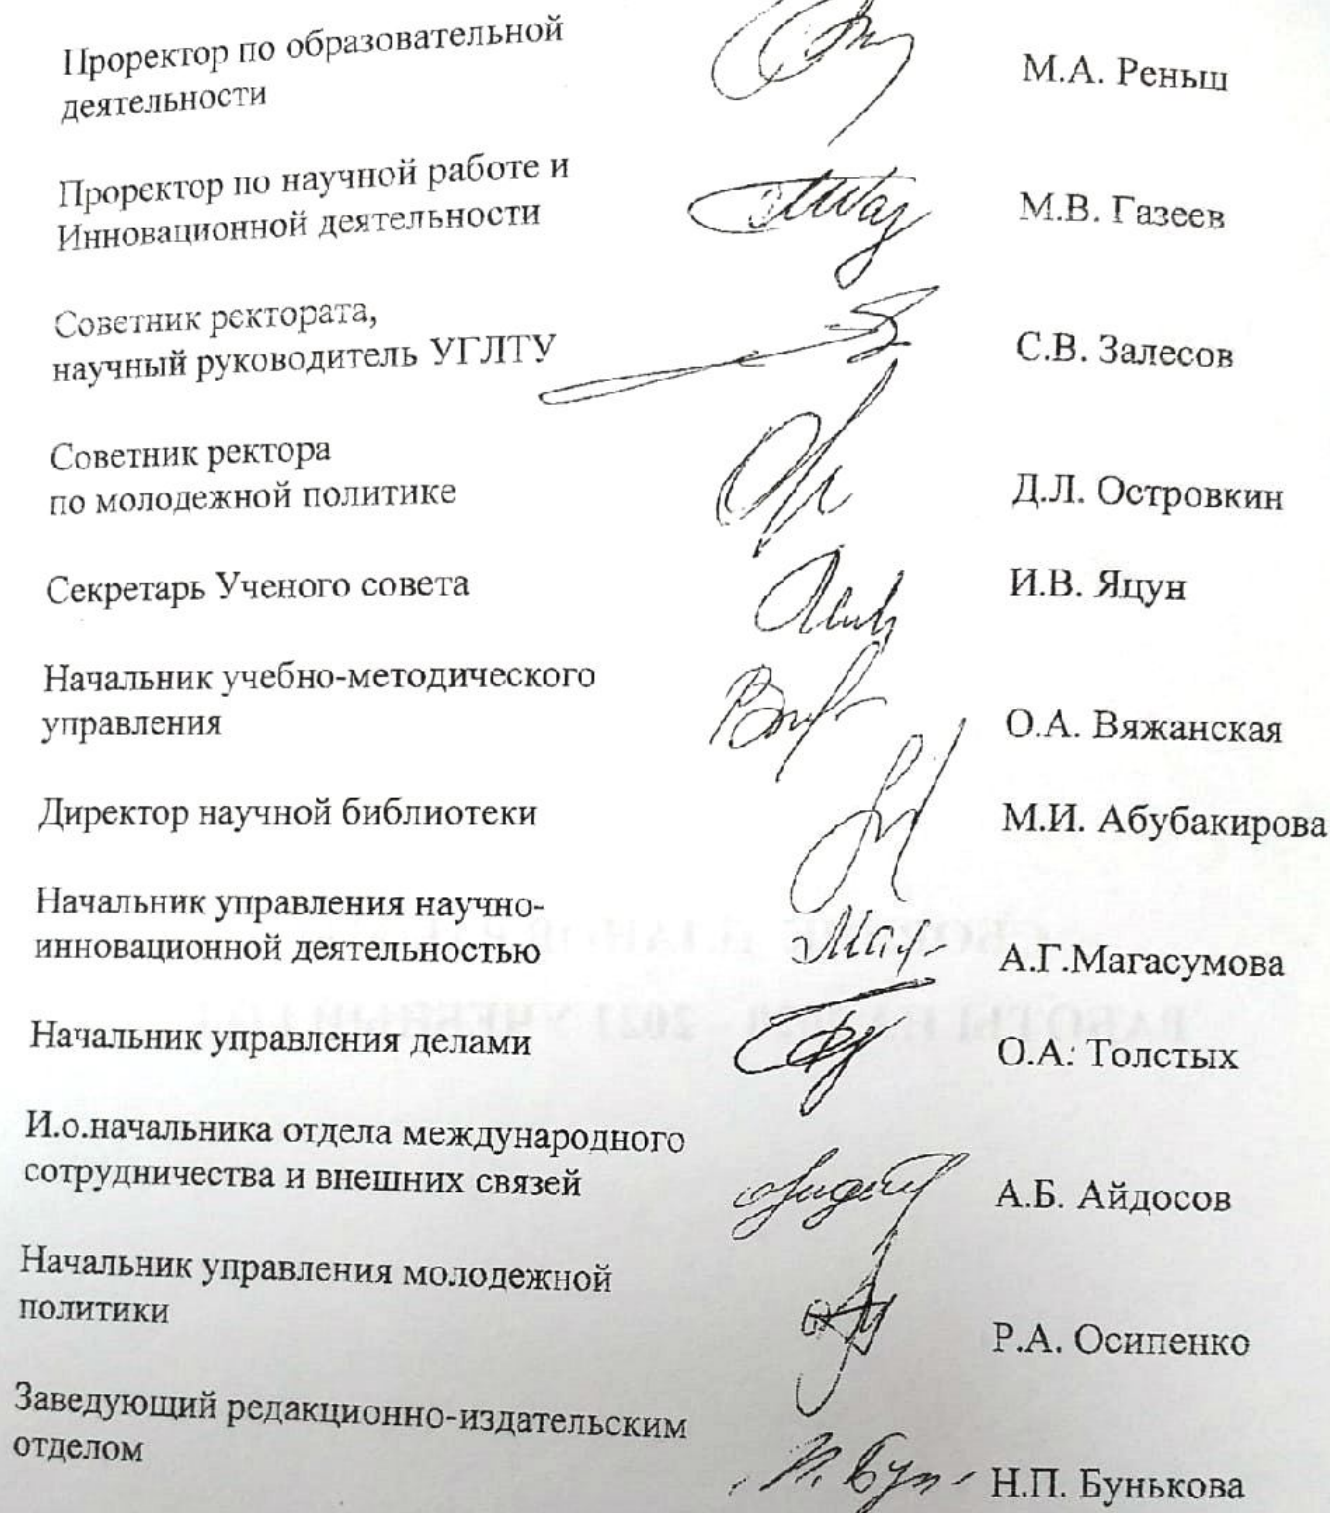 Проректор по образовательной
деятельности
М.А. Реньш
Проректор по научной работе и
Инновационной деятельности
М.В. Газеев
Советник ректората,
научный руководитель УГЛТУ
С.В. Залесов
Советник ректора
по молодежной политике
Д.Л. Островкин
Секретарь Ученого совета
И.В. Яцун
Начальник учебно-методического
управления
О.А. Вяжанская
Директор научной библиотеки
М.И. Абубакирова
Начальник управления научно-
инновационной деятельностью
А.Г.Магасумова
Начальник управления делами
О.А. Толстых
И.о.начальника отдела международного
сотрудничества и внешних связей
А.Б. Айдосов
Начальник управления молодежной
политики
Р.А. Осипенко
Заведующий редакционно-издательским
отделом
Н.П. Бунькова